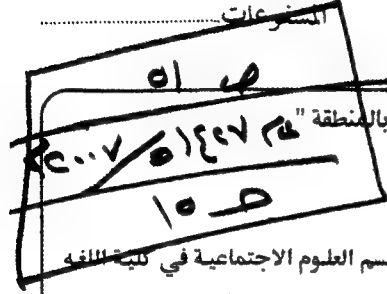 المشروعات
ص ٥١
بالمنطقة "
عام ١٤٢٧ ٥ / ٢٠٠٧
ص ١٥
سم العلوم الاجتماعية في كلية اللغه